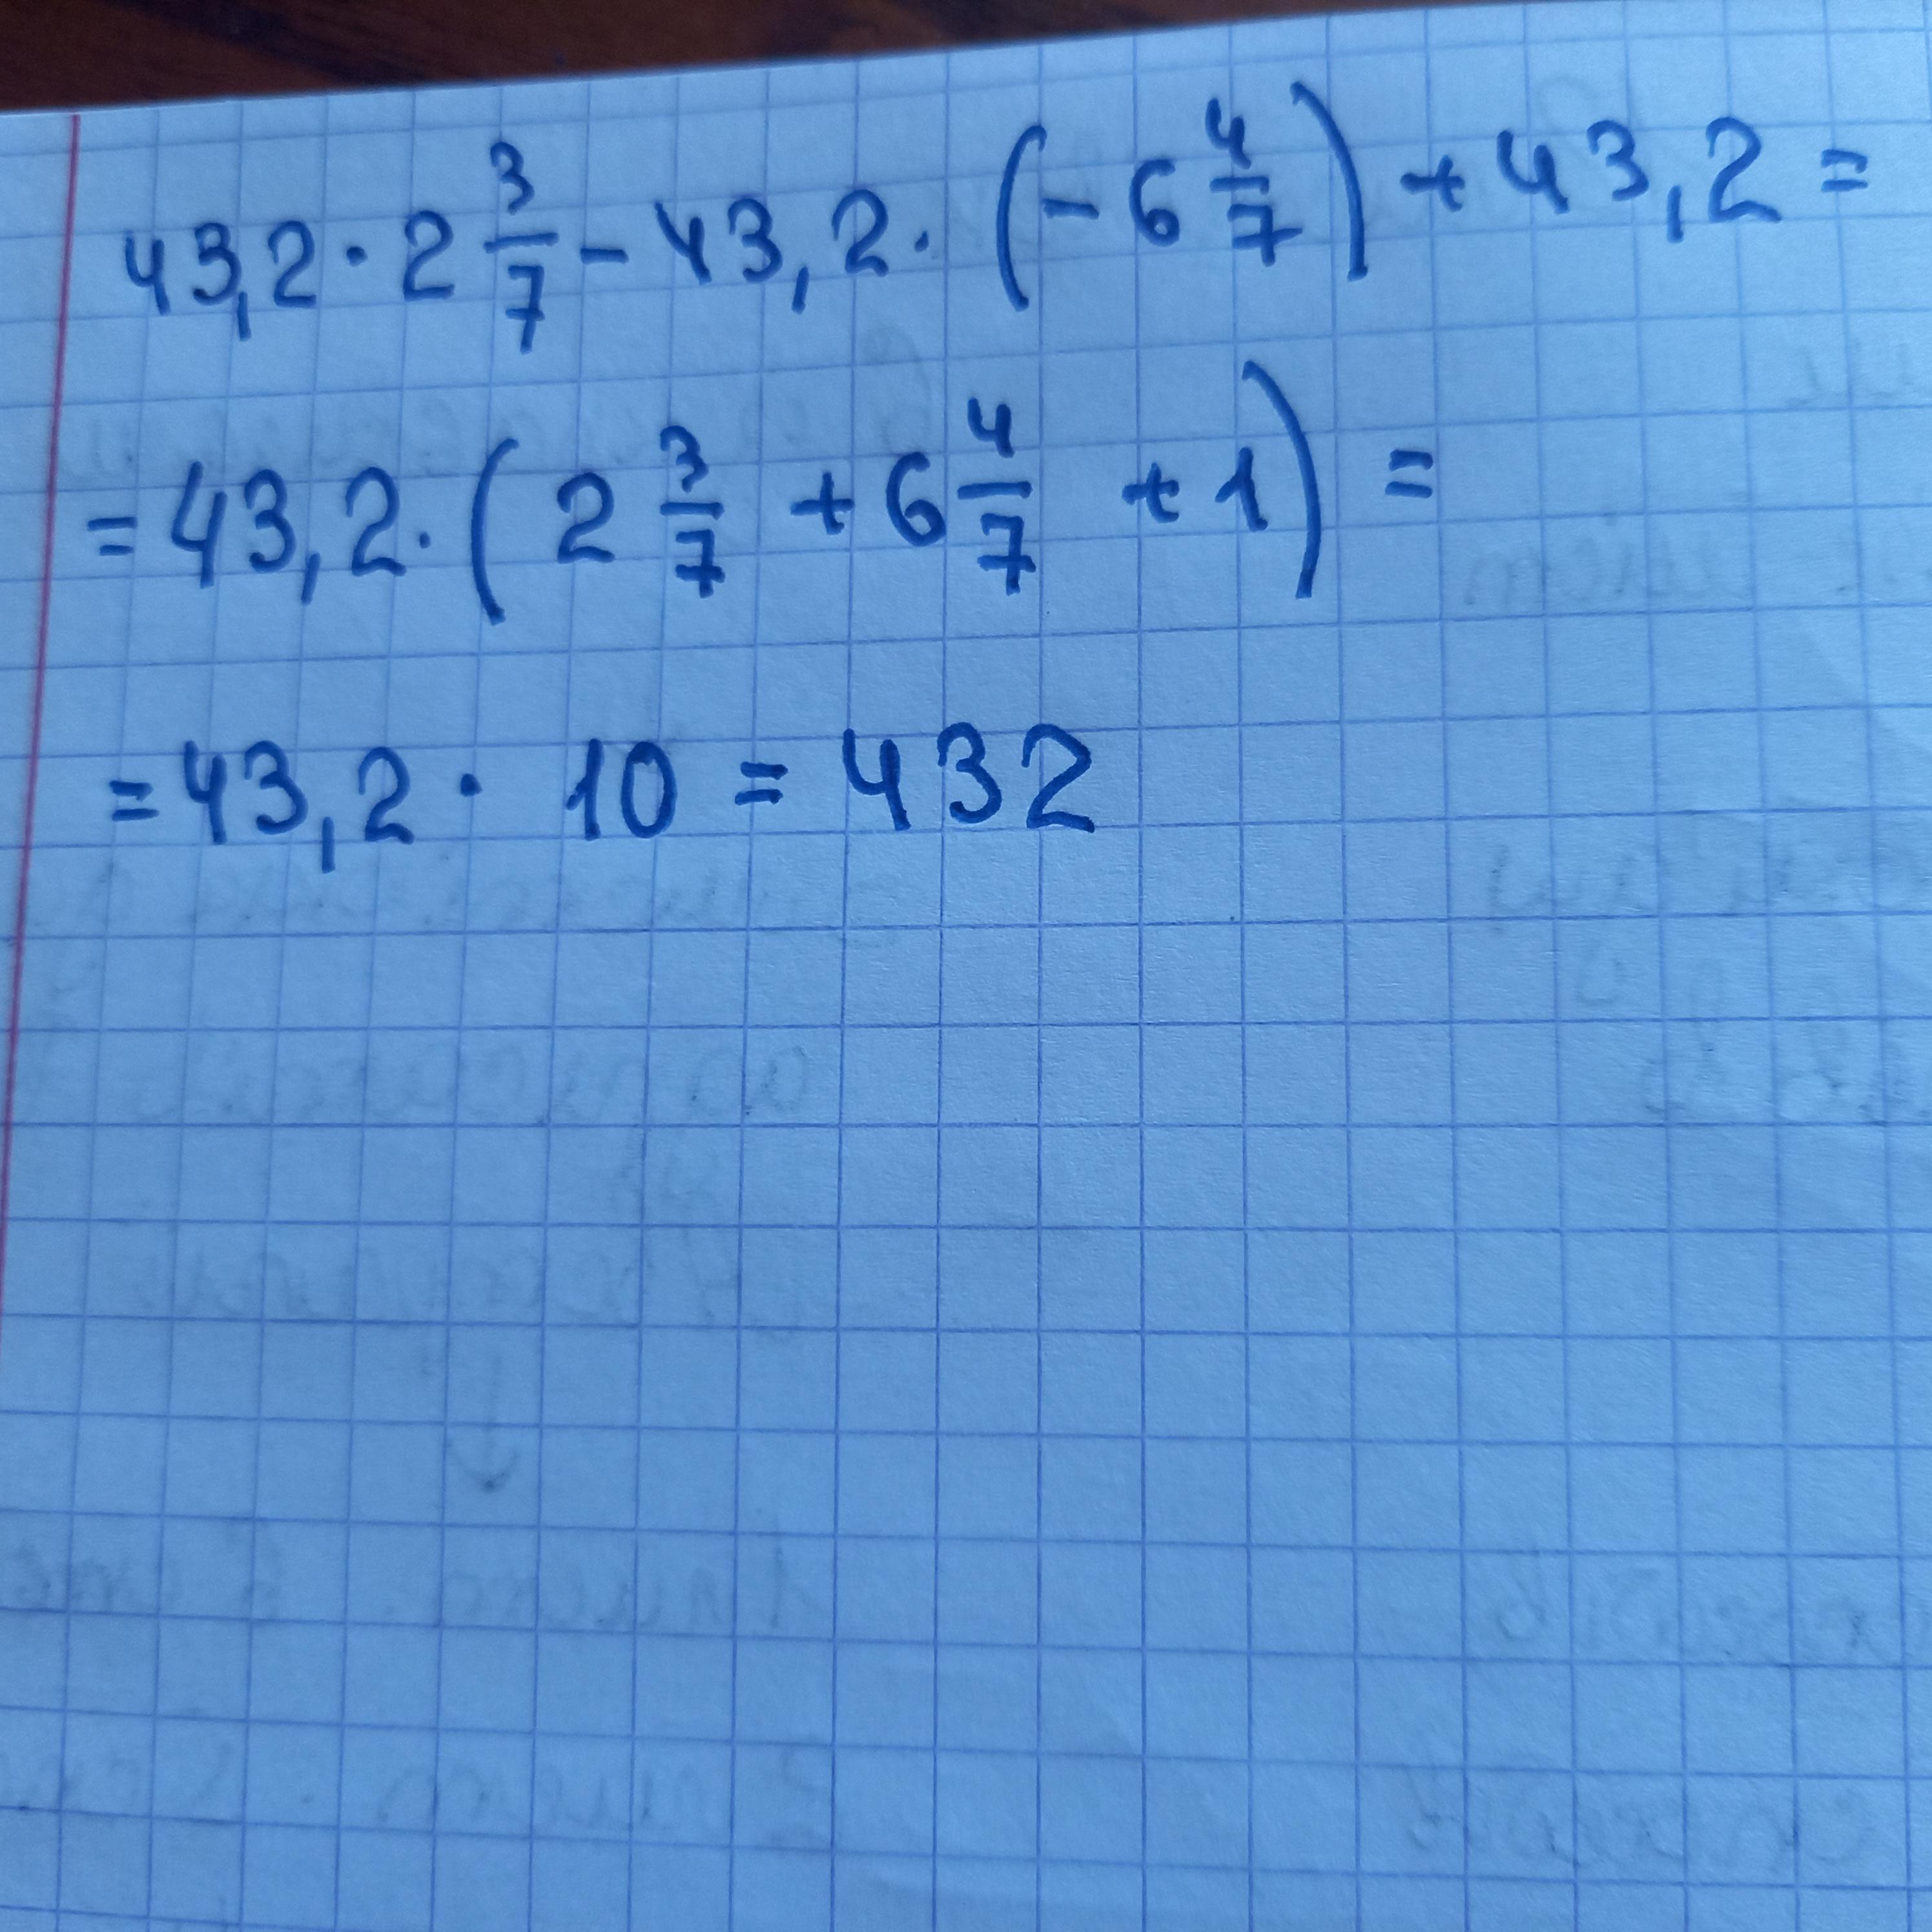 43,2 · 2 3/7 - 43,2 · (- 6 4/7) + 43,2 =
= 43,2 · (2 3/7 + 6 4/7 + 1) =
= 43,2 · 10 = 432